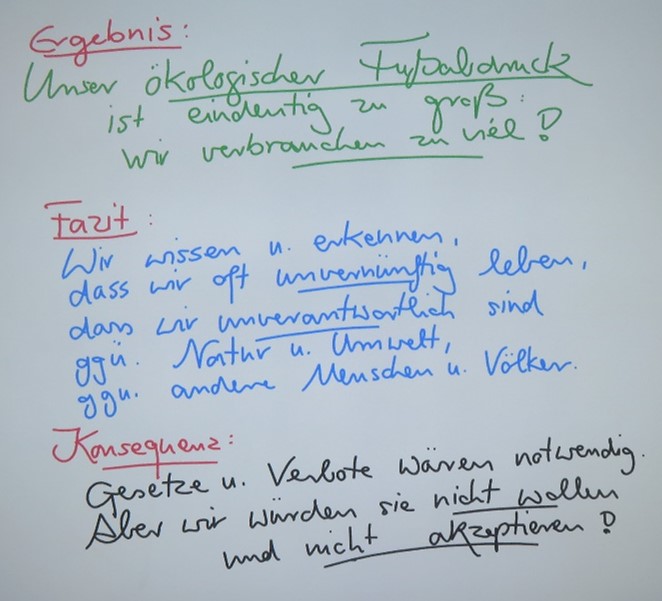 Ergebnis:
Unser ökologischer Fußabdruck
ist eindeutig zu groß:
wir verbrauchen zu viel!
Fazit:
Wir wissen u. erkennen,
dass wir oft unvernünftig leben,
dass wir unverantwortlich sind
ggü. Natur u. Umwelt,
ggü. andere Menschen u. Völker.
Konsequenz:
Gesetze u. Verbote wären notwendig.
Aber wir würden sie nicht wollen
und nicht akzeptieren!